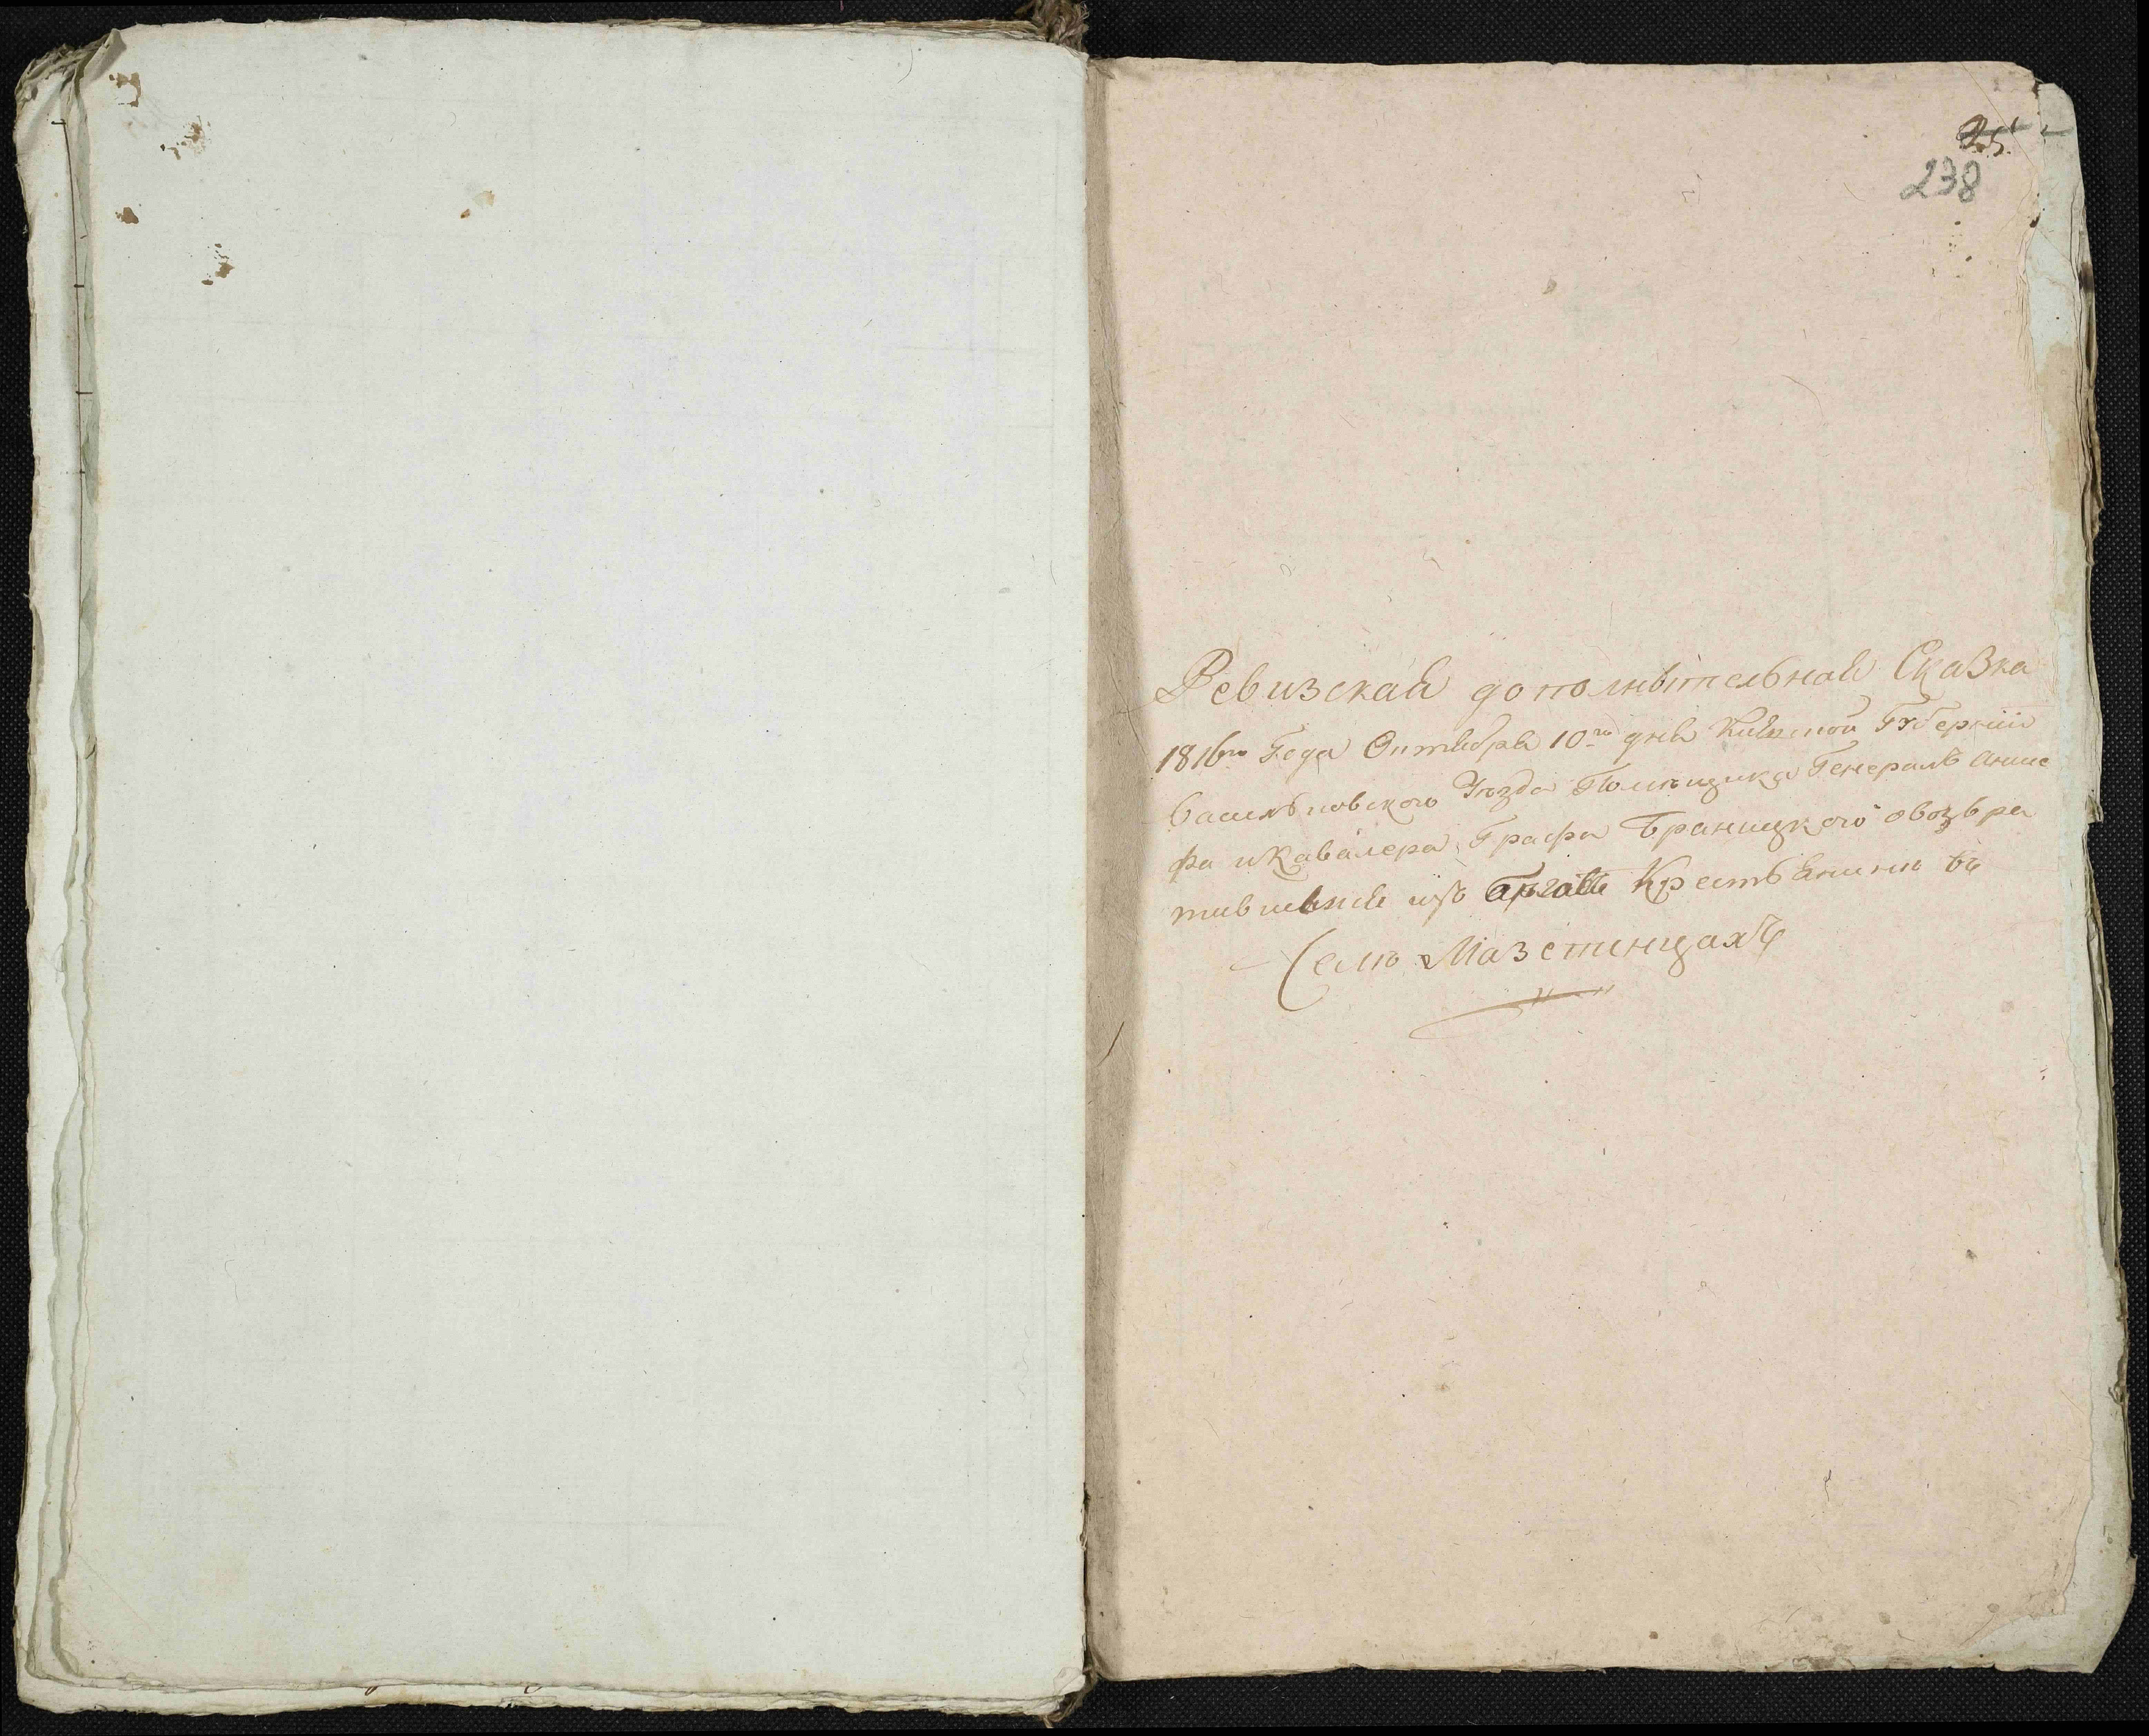 238
Ревизская дополнытельная Сказка
1816го Года Октября 10го дня Киевской Губернии
Василковского Уезда Помещика Генералъ Анше
фа и Кавалера Графа Браницкого овозъвра
тившемся изъ Крестьянине въ
Селе Мазепинцахъ